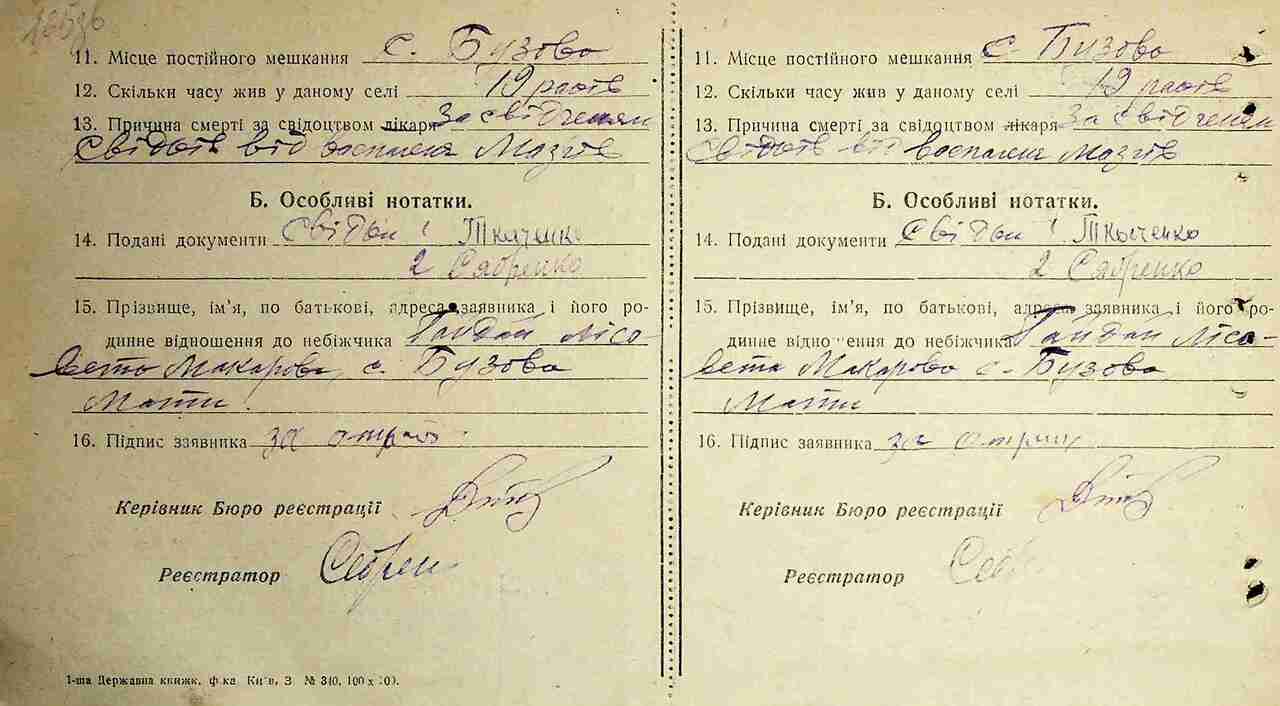 11. Місце постійного мешкання с. Бузова
12. Скільки часу жив у даному селі 19
13. Причина смерті за свідоцтвом лікаря За свідченям
від воспаленя Мозгів
Б. Особливі нотатки.
14. Подані документи Свідки 1 Ткаченко
2 Сябренко
15. Прізвище, ім’я, по батькові, адреса заявника і його ро-
динне відношення до небіжчика Гайдай Лісо
вета Макарова с. Бузова
Мати
16. Підпис заявника за
Керівник Бюро реєстрації
Реєстратор
1-ша Державна книжк. ф-ка Київ, З. № 340, 100 х
11. Місце постійного мешкання с. Бузова
12. Скільки часу жив у даному селі 19
13. Причина смерті за свідоцтвом лікаря За свідченям
від воспаленя Мозгів
Б. Особливі нотатки.
14. Подані документи Свідки 1 Ткаченко
2 Сябренко
15. Прізвище, ім’я, по батькові, адреса заявника і його ро-
динне відношення до небіжчика Гайдай Лісо-
вета Макарова с. Бузова
Мати
16. Підпис заявника за
Керівник Бюро реєстрації
Реєстратор